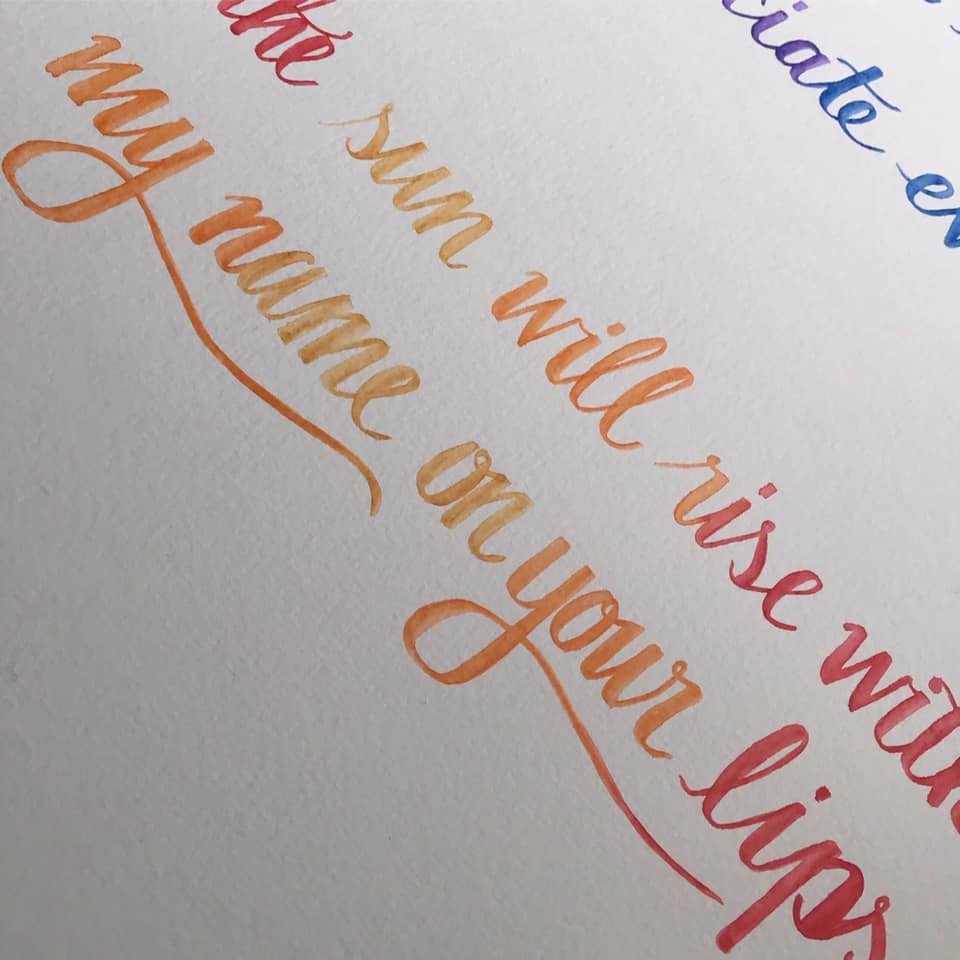 ciate
the sun will rise with
my name on your lips